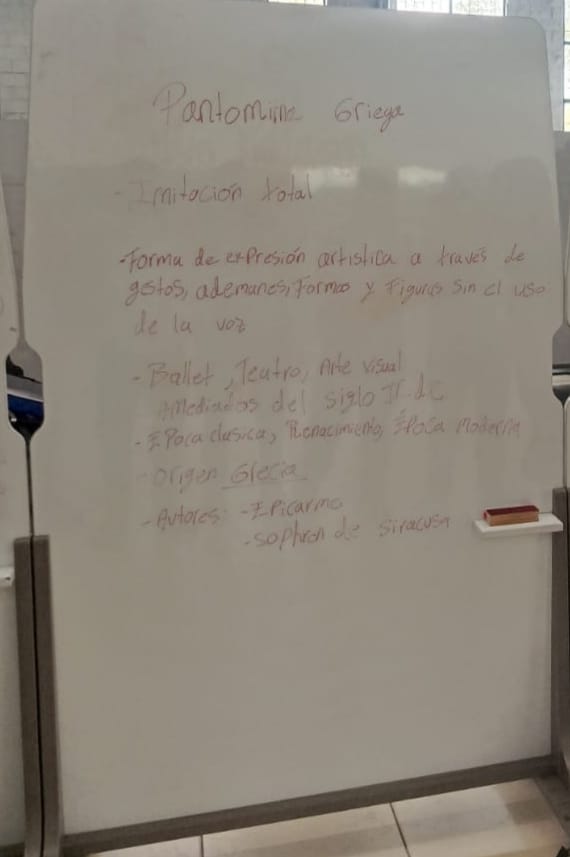 Pantomima Griega
- Imitación total
-Forma de expresión artistica a través de
gestos, ademanes, Formas y Figuras sin el uso
de la voz
- Ballet, Teatro, Arte visual
Amediados del siglo II d.C
- Epoca clasica, Renacimiento, Época Moderna
- Origen Grecia
- Autores: - Epicarmo
- Sophron de siracusa